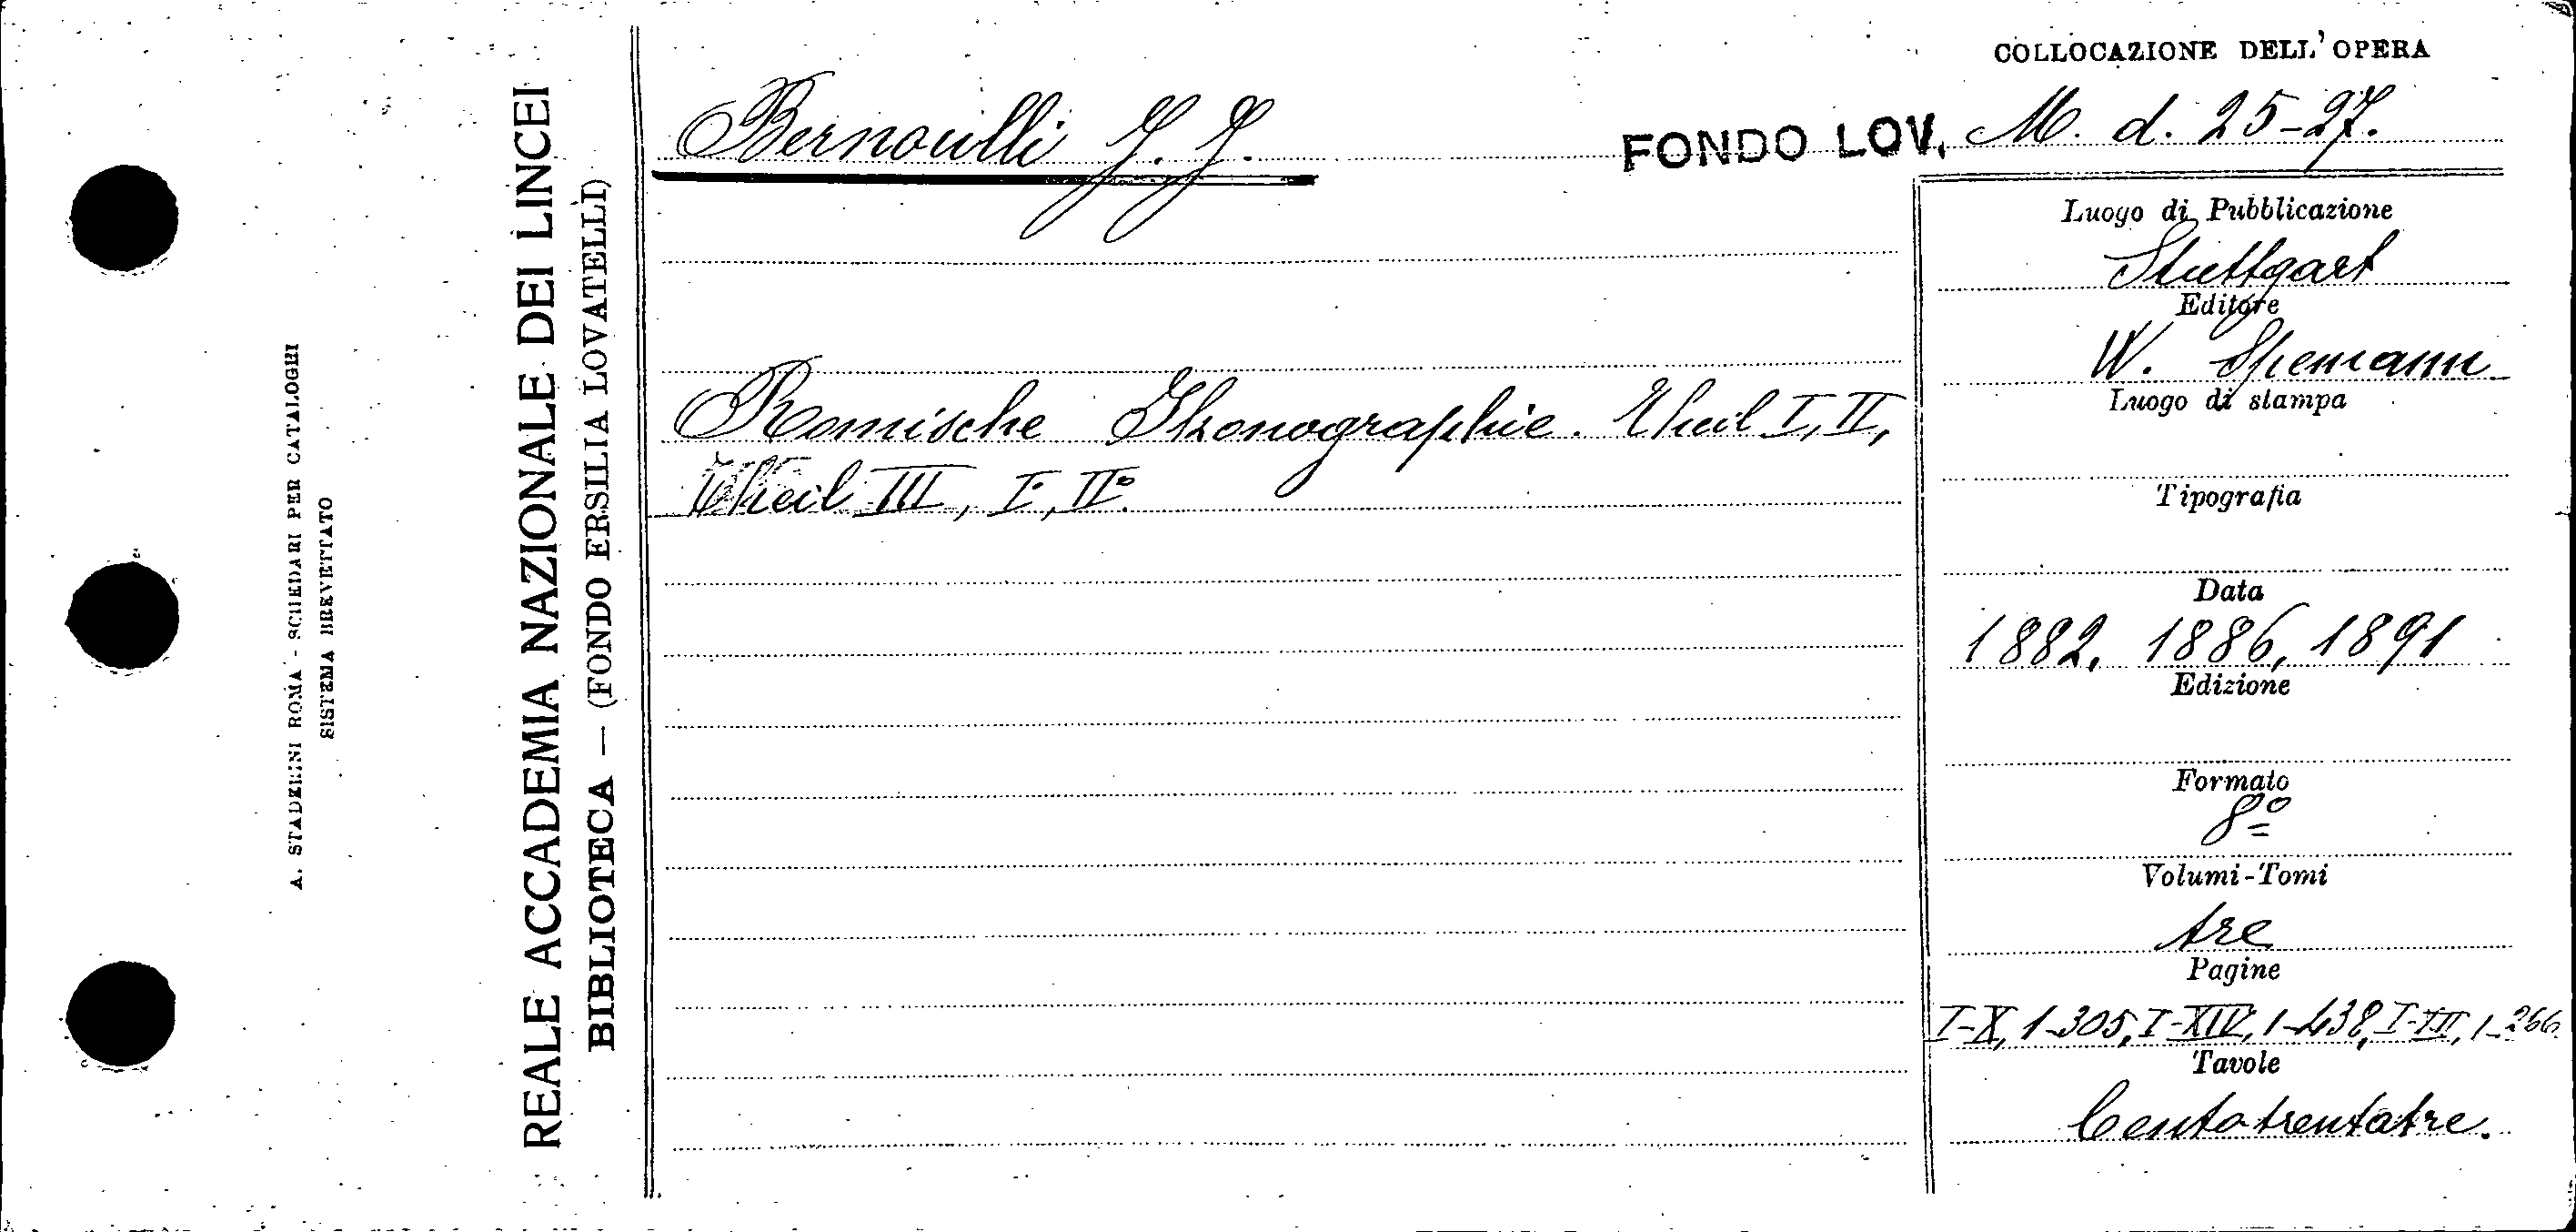 A. STADERINI ROMA - SCHEDARI PER CATALOGHI
SISTEMA BREVETTATO
REALE ACCADEMIA NAZIONALE DEI LINCEI
BIBLIOTECA — (FONDO ERSILIA LOVATELLI)
COLLOCAZIONE DELL'OPERA
Bernoulli J. J.
FONDO LOV. M. d. 25-27.
Romische Ikonographie. Theil I, II,
Theil III, I°, II°.
Luogo di Pubblicazione
Stuttgart
Editore
W. Spemann
Luogo di stampa
Tipografia
Data
1882, 1886, 1891
Edizione
Formato
8º
Volumi-Tomi
tre
Pagine
I-X, 1-305, I-XIV, 1-438, I-III, 1-266
Tavole
Centotrentatre.